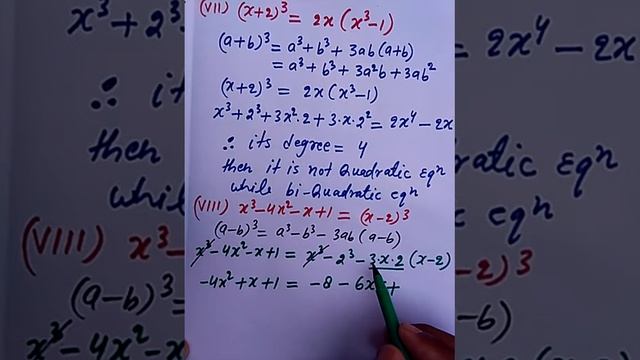 (VII) (x+2)³ = 2x(x³-1)
(a+b)³ = a³+b³+3ab(a+b)
= a³+b³+3a²b+3ab²
(x+2)³ = 2x(x³-1)
x³+2³+3x²·2+3·x·2² = 2x⁴-2x
∴ its degree = 4
then it is not Quadratic Eqⁿ
while bi-Quadratic eqⁿ
(VIII) x³-4x²-x+1 = (x-2)³
(a-b)³ = a³-b³-3ab(a-b)
x³-4x²-x+1 = x³-2³-3·x·2(x-2)
-4x²+x+1 = -8-6x